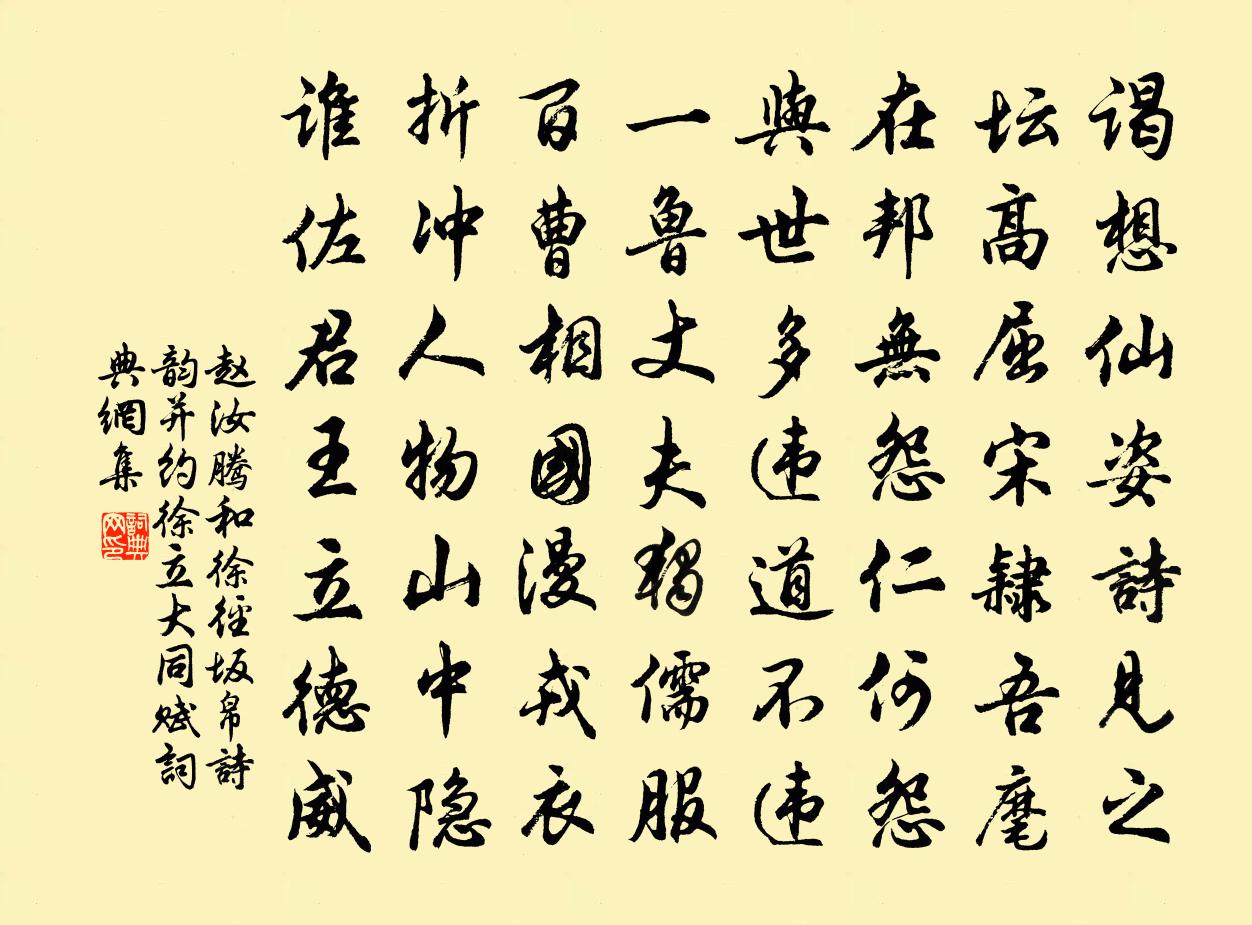 谒想仙姿詩見之
坛高屈宋隸吾麾
在邦無怨仁何怨
與世多违道不违
一鲁丈夫独儒服
百曹相國漫戎衣
折冲人物山中隐
谁佐君王立德威
赵汝腾和徐径坂帛詩
韵并约徐立大同赋詞
典網集
詞典网印